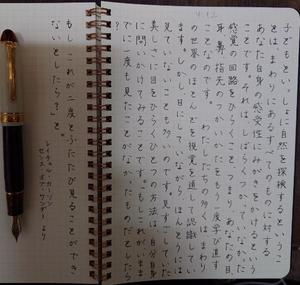 4.12
子どもといっしょに自然を探検するということは、まわりにあるすべてのものに対する
あなた自身の感受性にみがきをかけるという
ことです。それは、しばらくつかっていなかった
感覚の回路をひらくこと、つまり、あなたの目、
耳、鼻、指先のつかいかたをもう一度学び直す
ことなのです。
わたしたちの多くは、まわり
の世界のほとんどを視覚を通して認識してい
ます。しかし、目にしていながら、ほんとうには
見ていないことも多いのです。見すごしていた
美しさに目をひらくひとつの方法は、自分自身
に問いかけてみることです。「もしこれが、いま
までに一度も見たことがなかったものだとしたら
?
もし、これを二度とふたたび見ることができ
ないとしたら?」と。
レイチェル・カーソン
センス・オブ・ワンダー より